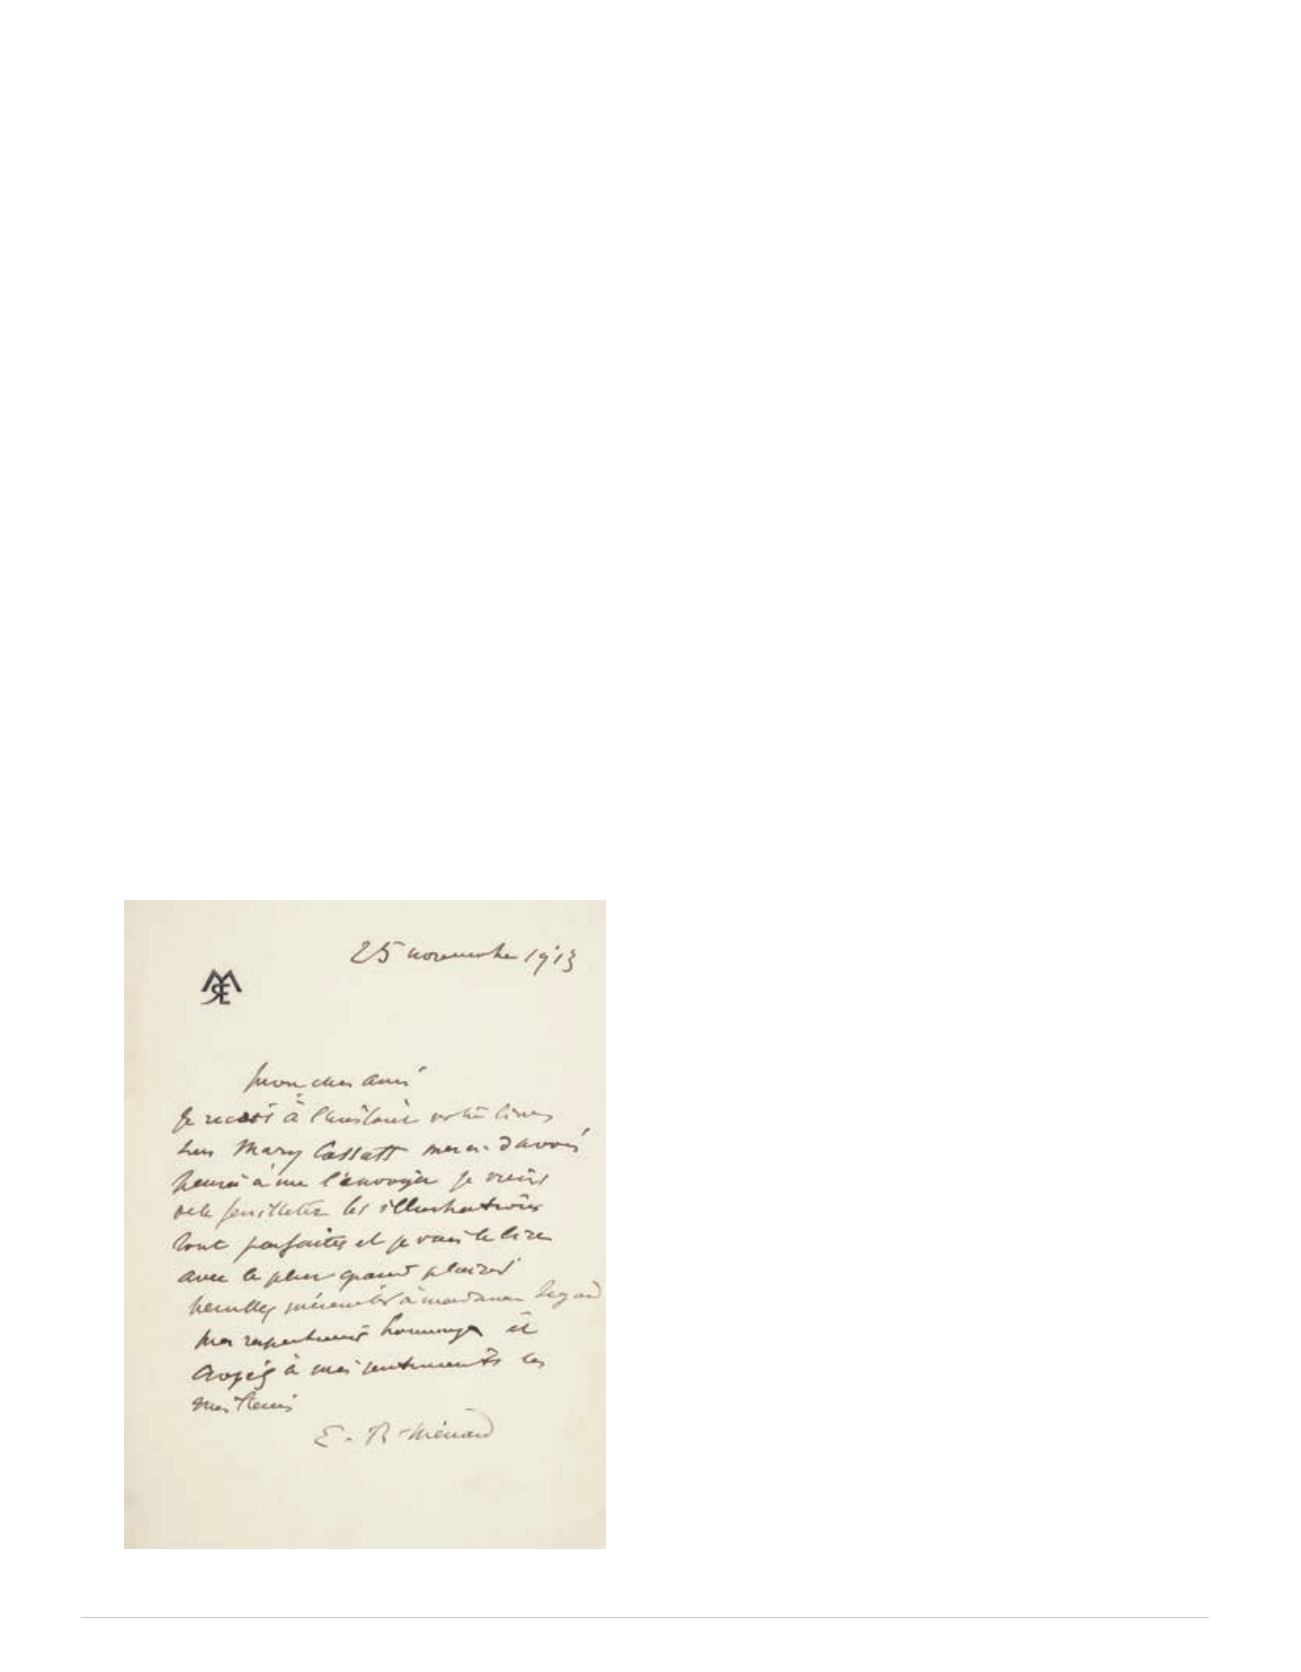 25 novembre 1913
Mon cher ami
Je reçois à l'instant votre livre
sur Mary Cassatt merci d'avoir
pensé à me l'envoyer je viens
de le feuilleter les illustrations
sont parfaites et je vais le lire
avec le plus grand plaisir
Veuillez présenter à madame Segard
mes respectueux hommages et
croyez à mes sentiments les
meilleurs
E. R. Ménard